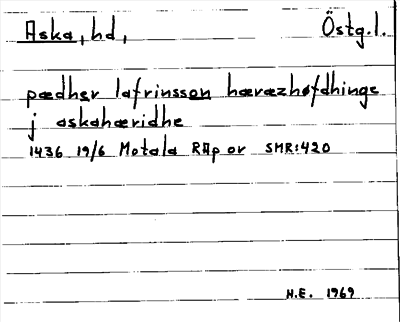 Aska, hd, Östg.l.
pædher lafrinsson hæræzhøfdhinge
j askahæridhe
1436 19/6 Motala RAp or SMR:420
H.E. 1969